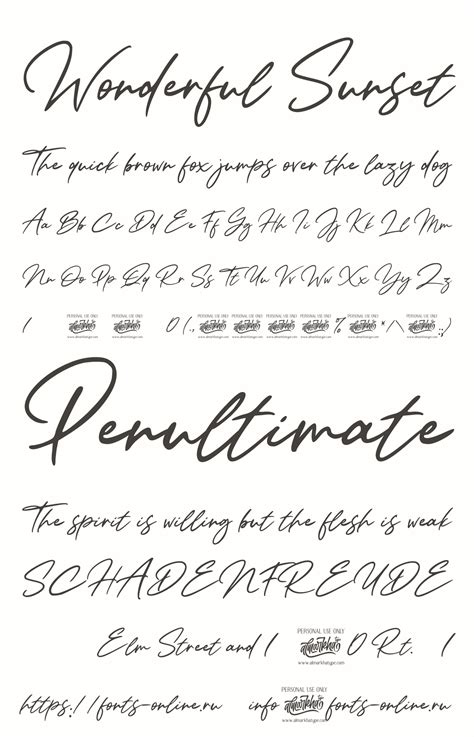 Wonderful Sunset
The quick brown fox jumps over the lazy dog
Aa Bb Cc Dd Ee Ff Gg Hh Ii Jj Kk Ll Mm
Nn Oo Pp Qq Rr Ss Tt Uu Vv Ww Xx Yy Zz
PERSONAL USE ONLY PERSONAL USE ONLY PERSONAL USE ONLY PERSONAL USE ONLY PERSONAL USE ONLY PERSONAL USE ONLY PERSONAL USE ONLY
1 0 (., % * / \ :;)
Penultimate
The spirit is willing but the flesh is weak
SCHADENFREUDE
PERSONAL USE ONLY
Elm Street and 1 almarkhatype 0 Rt. 1
www.almarkhatype.com
PERSONAL USE ONLY
https://fonts-online.ru info almarkhatype fonts-online.ru
www.almarkhatype.com